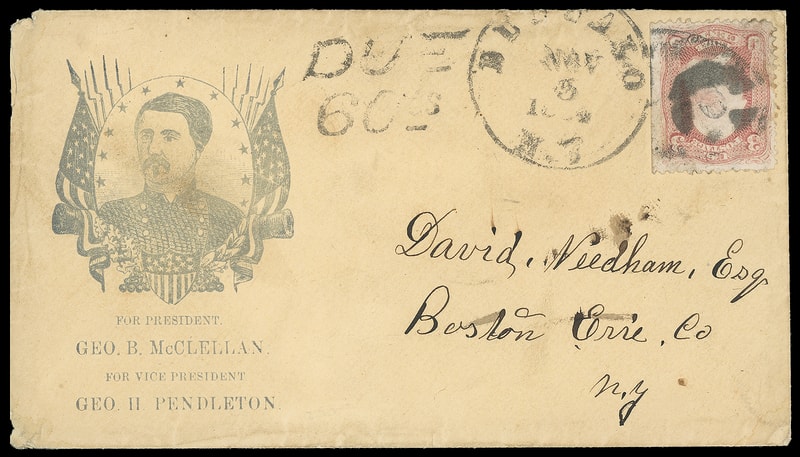 DUE
6 cts
BUFFALO
NOV
N.Y.
3
3
FOR PRESIDENT.
GEO. B. McCLELLAN.
FOR VICE PRESIDENT
GEO. H PENDLETON.
David, Needham, Esq
Boston Erie, Co
N,y